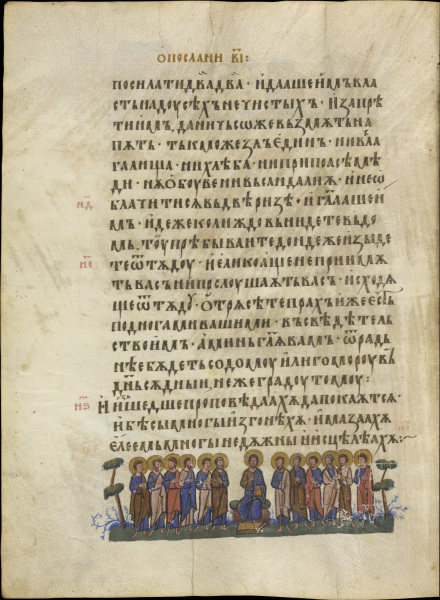 О ПОСЛАНИ В҃І:
посилати два два · и даꙗше имъ вла
сть на доусѣхъ нечистыхъ · и запрѣ
ти имъ, да ничьсоже възмѫтъ на
пѫть · тъкмо жезлъ единъ · ни вла
галища · ни хлѣба · ни при поасѣ мѣ
ди · нѫ обоувени въ сандалиѫ · и не ѡ
м҃д блачити сѧ въ двѣ ризѣ · и гл҃аше и
мъ · идеже колиждо вънидете въ до
мъ, тоу прѣбываите дондеже изыде
м҃е те ѿтѫдоу · и елико аще не приимѫ
тъ васъ ни послоушаѫтъ васъ · исходѧ
ще ѿтѫдꙋ · отрѧсѣте прахъ иже есть
под ногами вашими · въ свѣдѣтель
ство имъ · аминь гл҃ѫ вамъ · ѿрад
нѣе бѫдетъ содомоу или гомороу въ
дн҃ь сѫдныи, неже градоу томоу:
м҃ѕ И ишедше проповѣдаахѫ да покаѫтсѧ ·
и бѣсы многы изгонѣхѫ · и мазаахѫ
елеемъ многы недѫжны и исцѣлѣахѫ:~